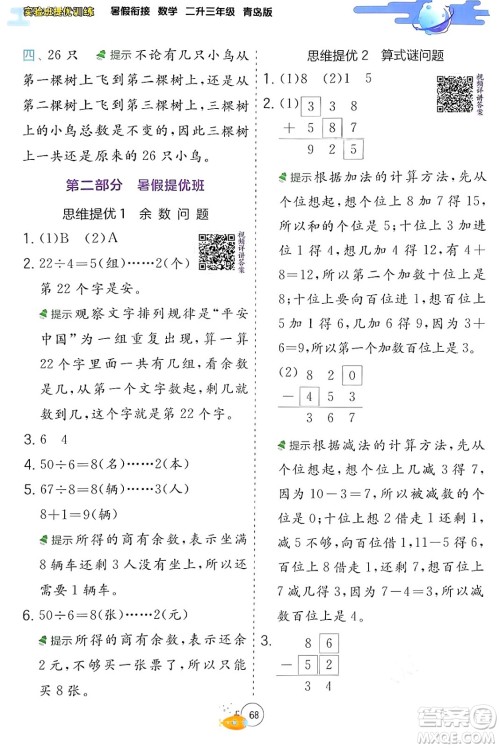 实验班提优训练 暑假衔接 数学 二升三年级 青岛版
四、26 只 提示 不论有几只小鸟从
第一棵树上飞到第二棵树上,两棵树上
的小鸟总数是不变的,因此两棵树上一
共还是原来的 26 只小鸟。
第二部分 暑假提优班
思维提优 1 余数问题
1. (1)B (2)A
视频详讲答案
2. 22÷4=5(组)……2(个)
第 22 个字是安。
提示 观察文字排列规律是“平安
中国”为一组重复出现,算一算
22 里面一共有几个这样的一组,余
数是几,从第一个文字起数出几,就
是最后一个文字。
3. 6 4
4. 50÷6=8(名)……2(本)
5. 50÷6=8(辆)……2(人)
8+1=9(辆)
提示 所得的商有余数,代表坐满
8 辆车还剩 3 人没车坐,所以还需
要 1 辆车。
6. 50÷6=8(张)……2(元)
提示 所得的商有余数,代表买 8
张后还剩 2 元,不够买 1 张,所以可
买 8 张。
思维提优 2 算式谜问题
1. (1)8 (2)5
视频详讲答案
2. (1) 3 3 8
+ 5 8 7
9 2 5
提示 根据加法的计算方法,先从
个位想起,想几加 7 得 15,8+7=15,
所以和的个位上是 5,一个加数个位
上是 8;十位上想 3 加几加 1 得 12,
3+8+1=12,所以第二个加数十位上
是 8;百位上想几加 5 加 1 得 9,3+
5+1=9,所以第一个加数百位上是 3。
(2) 8 2 0
- 4 5 3
3 6 7
提示 根据减法的计算方法,先从
个位想起,想个位上几减 3 得 7,
因为 10-3=7,所以被减数个位上
是 0;十位上想 2 借走 1 还剩 1,
11-5=6,所以差的十位上是 6;百
位上想 8 借走 1 还剩 7,7 减几得
3,因为 7-4=3,所以减数百位上
是 4。
3. (1) 8 6
- 5 2
3 4
68